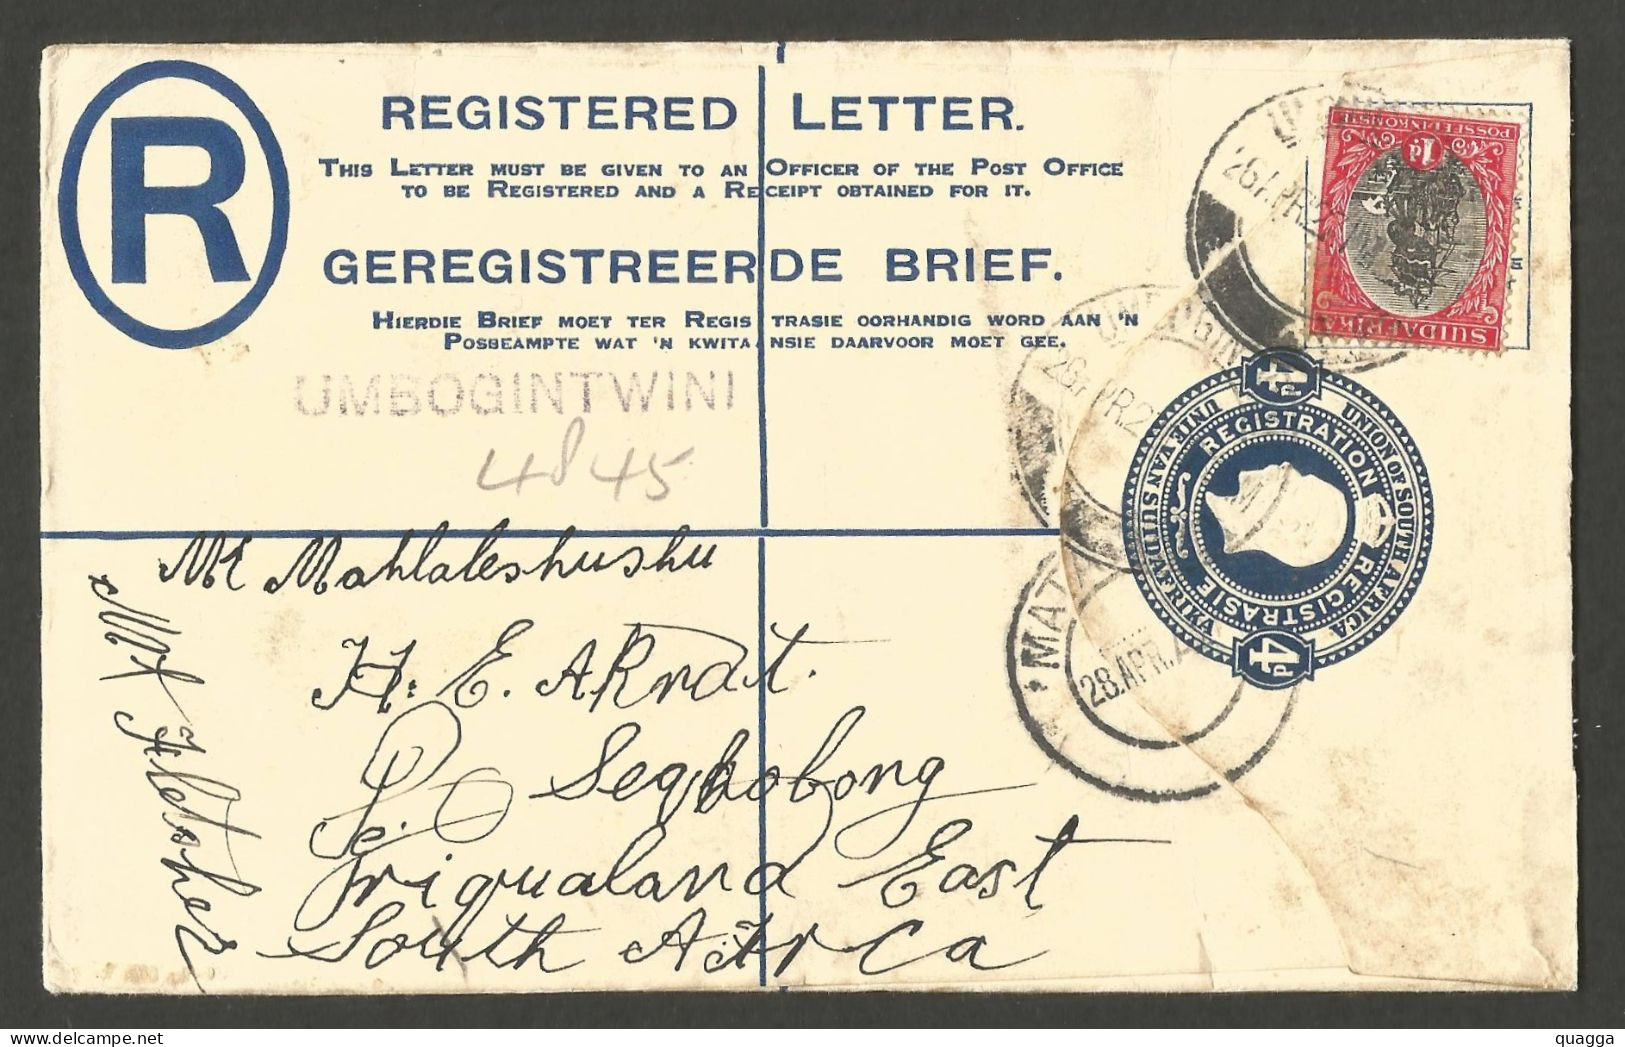 R
REGISTERED LETTER.
THIS LETTER MUST BE GIVEN TO AN OFFICER OF THE POST OFFICE
TO BE REGISTERED AND A RECEIPT OBTAINED FOR IT.
GEREGISTREERDE BRIEF.
HIERDIE BRIEF MOET TER REGISTRASIE OORHANDIG WORD AAN 'N
POSBEAMPTE WAT 'N KWITANSIE DAARVOOR MOET GEE.
UMBOGINTWINI
4845
POSSEEL INKOMSTE
1d
SUIDAFRIKA
26 APR 2
26 APR 2
4d
UNION OF SOUTH AFRICA
UNIE VAN SUID AFRIKA
REGISTRATION
REGISTRASIE
4d
MATA
28.APR.2
Mr Mahlaleshushu
H. E. AKrat.
P. O Seqhobong
Griqualand East
South Africa
x Mrx Fletcher
quagga